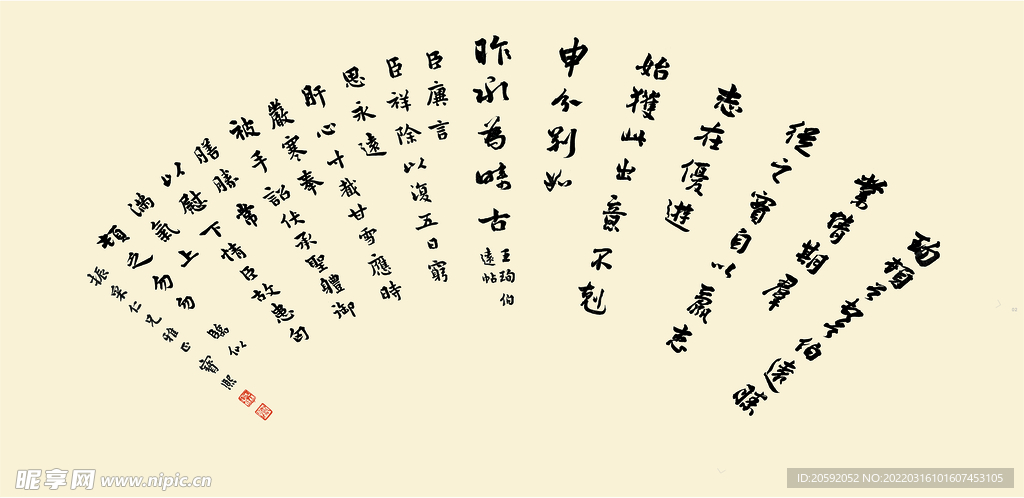 珣頓首頓首伯遠勝
業情期羣
從之寶自以羸患
志在優遊
始獲此出意不剋
申分別如
昨永為疇古
王珣伯
遠帖
臣廙言
臣祥除以復五日窮
思永遠
肝心寸截甘雪應時
嚴寒奉
被手詔伏承聖體御
膳勝常
以慰下情臣故患匈
滿氣上
頓乏勿勿 臨似
振采仁兄雅正 寶熙
昵享网 www.nipic.cn
ID:20592052 NO:20220316101607453105